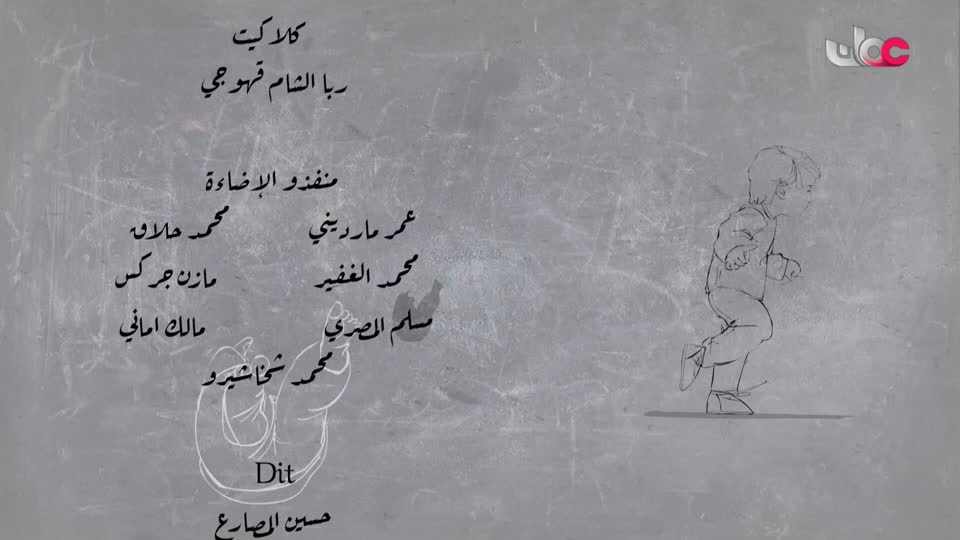 كلاكيت
ربا الشام قهوجي
منفذو الإضاءة
عمر مارديني محمد حلاق
محمد الغفير مازن جركس
مسلم المصري مالك اماني
محمد شخاشيرو
Dit
حسين المصارع